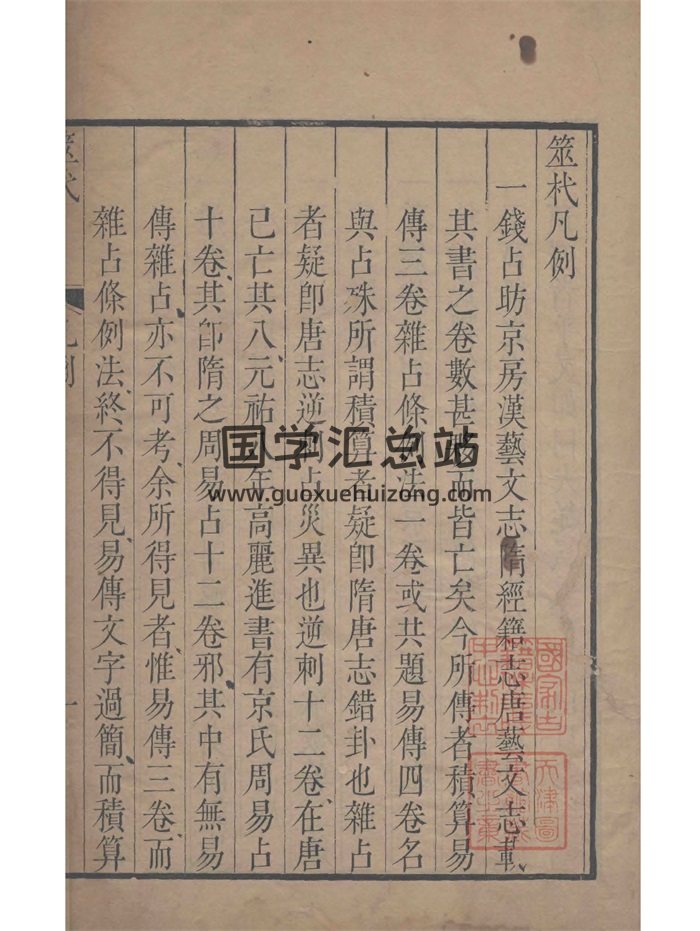 筮杙凡例
一錢占昉京房漢藝文志隋經籍志唐藝文志載
其書之卷數甚 而皆亡矣今所傳者積算易
傳三卷雜占條例法一卷或共題易傳四卷名
與占殊所謂積算者疑卽隋唐志錯卦也雜占
者疑卽唐志逆刺占災異也逆刺十二卷在唐
已亡其八元祐八年高麗進書有京氏周易占
十卷其卽隋之周易占十二卷邪其中有無易
傳雜占亦不可考余所得見者惟易傳三卷而
雜占條例法終不得見易傳文字過簡而積算
筮杙
凡例
一
国学汇总站
www.guoxuehuizong.com